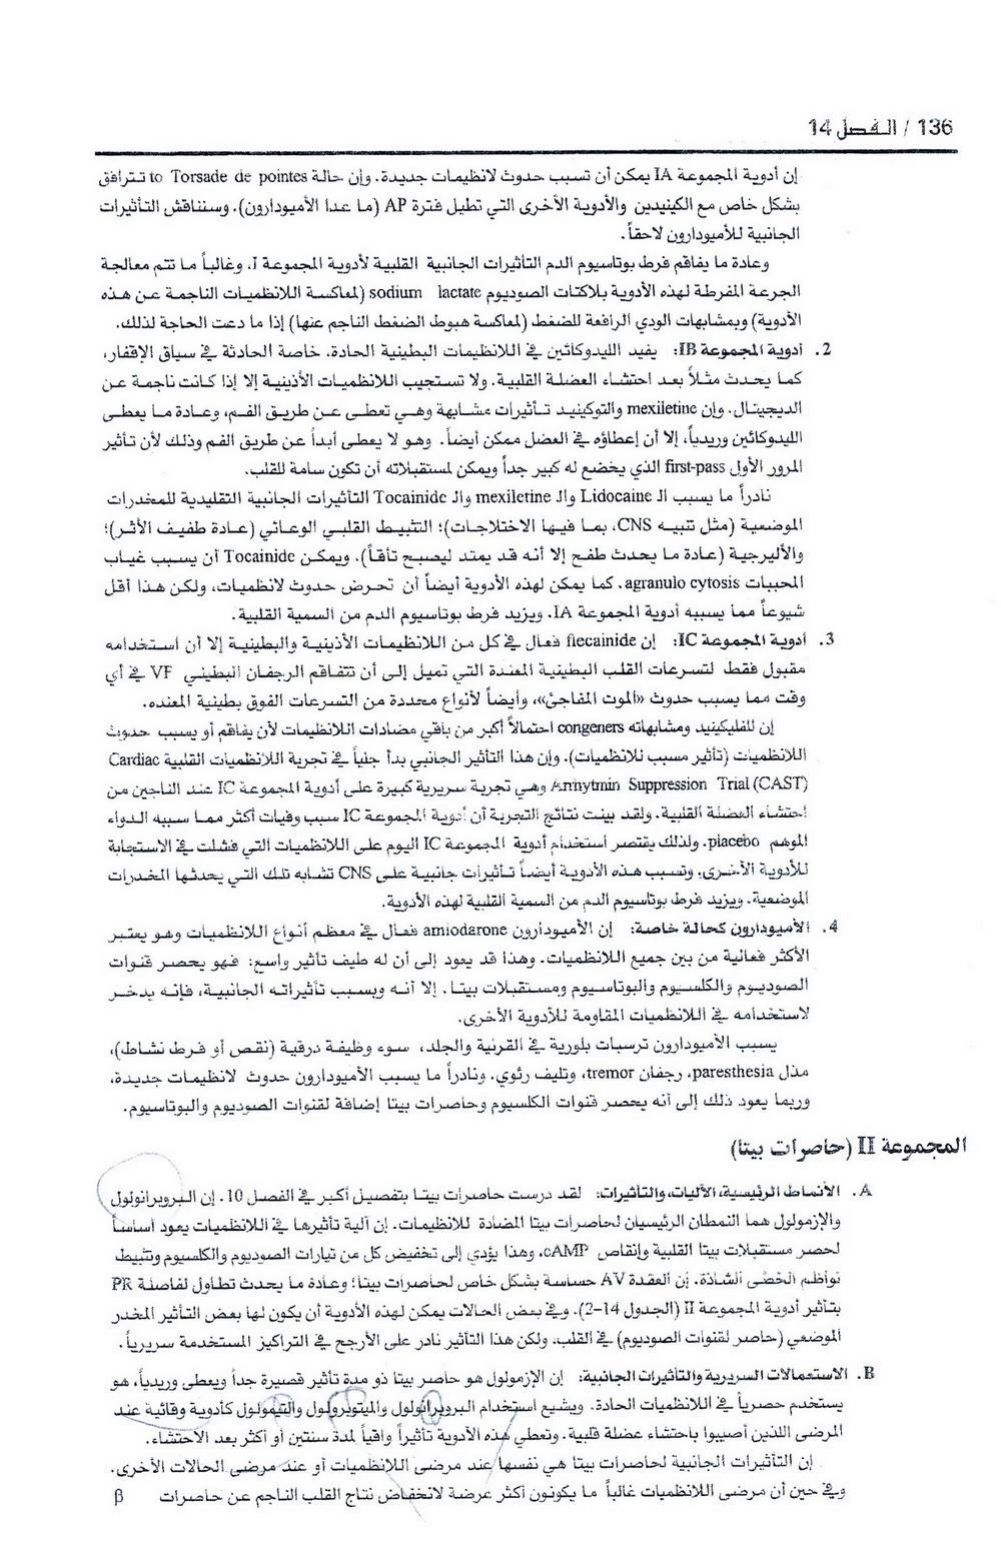 136 / الفصل 14
إن أدوية المجموعة IA يمكن أن تسبب حدوث لانظيمات جديدة. وإن حالة to Torsade de pointes تترافق
بشكل خاص مع الكينيدين والأدوية الأخرى التي تطيل فترة AP (ما عدا الأميودارون). وسنناقش التأثيرات
الجانبية للأميودارون لاحقاً.
وعادة ما يفاقم فرط بوتاسيوم الدم التأثيرات الجانبية القلبية لأدوية المجموعة I، وغالباً ما تتم معالجة
الجرعة المفرطة لهذه الأدوية بلاكتات الصوديوم sodium lactate (لمعاكسة اللانظميات الناجمة عن هذه
الأدوية) وبمشابهات الودي الرافعة للضغط (لمعاكسة هبوط الضغط الناجم عنها) إذا ما دعت الحاجة لذلك.
2. أدوية المجموعة IB: يفيد الليدوكائين في اللانظميات البطينية الحادة، خاصة الحادثة في سياق الإقفار،
كما يحدث مثلاً بعد احتشاء العضلة القلبية. ولا تستجيب اللانظميات الأذينية إلا إذا كانت ناجمة عن
الديجيتال. وإن mexiletine والتوكينيد تأثيرات مشابهة وهي تعطى عن طريق الفم، وعادة ما يعطى
الليدوكائين وريدياً، إلا أن إعطاؤه في العضل ممكن أيضاً. وهو لا يعطى أبداً عن طريق الفم وذلك لأن تأثير
المرور الأول first-pass الذي يخضع له كبير جداً ويمكن لمستقبلاته أن تكون سامة للقلب.
نادراً ما يسبب الـ Lidocaine والـ mexiletine والـ Tocainide التأثيرات الجانبية التقليدية للمخدرات
الموضعية (مثل تنبيه CNS، بما فيها الاختلاجات)؛ التثبيط القلبي الوعائي (عادة طفيف الأثر)؛
والأليرجية (عادة ما يحدث طفح إلا أنه قد يمتد ليصبح تأقاً). ويمكن Tocainide أن يسبب غياب
المحببات agranulo cytosis. كما يمكن لهذه الأدوية أيضاً أن تحرض حدوث لانظميات، ولكن هذا أقل
شيوعاً مما يسببه أدوية المجموعة IA. ويزيد فرط بوتاسيوم الدم من السمية القلبية.
3. أدوية المجموعة IC: إن flecainide فعال في كل من اللانظميات الأذينية والبطينية إلا أن استخدامه
مقبول فقط لتسرعات القلب البطينية المعندة التي تميل إلى أن تتفاقم الرجفان البطيني VF في أي
وقت مما يسبب حدوث «الموت المفاجئ»، وأيضاً لأنواع محددة من التسرعات الفوق بطينية المعنده.
إن للفليكينيد ومشابهاته congeners احتمالاً أكبر من باقي مضادات اللانظيمات لأن يفاقم أو يسبب حدوث
اللانظميات (تأثير مسبب للانظميات). وإن هذا التأثير الجانبي بدأ جلياً في تجربة اللانظميات القلبية Cardiac
Arrhytmin Suppression Trial (CAST) وهي تجربة سريرية كبيرة على أدوية المجموعة IC عند الناجين من
احتشاء العضلة القلبية. ولقد بينت نتائج التجربة أن أدوية المجموعة IC سبب وفيات أكثر مما سببه الدواء
الموهم placebo. ولذلك يقتصر استخدام أدوية المجموعة IC اليوم على اللانظميات التي فشلت في الاستجابة
للأدوية الأخرى. وتسبب هذه الأدوية أيضاً تأثيرات جانبية على CNS تشابه تلك التي يحدثها المخدرات
الموضعية. ويزيد فرط بوتاسيوم الدم من السمية القلبية لهذه الأدوية.
4. الأميودارون كحالة خاصة: إن الأميودارون amiodarone فعال في معظم أنواع اللانظميات وهو يعتبر
الأكثر فعالية من بين جميع اللانظميات. وهذا قد يعود إلى أن له طيف تأثير واسع: فهو يحصر قنوات
الصوديوم والكلسيوم والبوتاسيوم ومستقبلات بيتا. إلا أنه وبسبب تأثيراته الجانبية، فإنه يدخر
لاستخدامه في اللانظميات المقاومة للأدوية الأخرى.
يسبب الأميودارون ترسبات بلورية في القرنية والجلد، سوء وظيفة درقية (نقص أو فرط نشاط)،
مذل paresthesia، رجفان tremor، وتليف رئوي. ونادراً ما يسبب الأميودارون حدوث لانظميات جديدة،
وربما يعود ذلك إلى أنه يحصر قنوات الكلسيوم وحاصرات بيتا إضافة لقنوات الصوديوم والبوتاسيوم.
المجموعة II (حاصرات بيتا)
A. الأنماط الرئيسية، الآليات، والتأثيرات: لقد درست حاصرات بيتا بتفصيل أكبر في الفصل 10. إن البروبرانولول
والإزمولول هما النمطان الرئيسيان لحاصرات بيتا المضادة للانظيمات. إن آلية تأثيرها في اللانظميات يعود أساساً
لحصر مستقبلات بيتا القلبية وإنقاص cAMP، وهذا يؤدي إلى تخفيض كل من تيارات الصوديوم والكلسيوم وتثبيط
نواظم الخطى الشاذة. إن العقدة AV حساسة بشكل خاص لحاصرات بيتا؛ وعادة ما يحدث تطاول لفاصلة PR
بتأثير أدوية المجموعة II (الجدول 14-2). وفي بعض الحالات يمكن لهذه الأدوية أن يكون لها بعض التأثير المخدر
الموضعي (حاصر لقنوات الصوديوم) في القلب، ولكن هذا التأثير نادر على الأرجح في التراكيز المستخدمة سريرياً.
B. الاستعمالات السريرية والتأثيرات الجانبية: إن الإزمولول هو حاصر بيتا ذو مدة تأثير قصيرة جداً ويعطى وريدياً، هو
يستخدم حصرياً في اللانظميات الحادة. ويشيع استخدام البروبرانولول والميتوبرولول والتيمولول كأدوية وقائية عند
المرضى اللذين أصيبوا باحتشاء عضلة قلبية. وتعطي هذه الأدوية تأثيراً واقياً لمدة سنتين أو أكثر بعد الاحتشاء.
إن التأثيرات الجانبية لحاصرات بيتا هي نفسها عند مرضى اللانظميات أو عند مرضى الحالات الأخرى.
وفي حين أن مرضى اللانظميات غالباً ما يكونون أكثر عرضة لانخفاض نتاج القلب الناجم عن حاصرات β